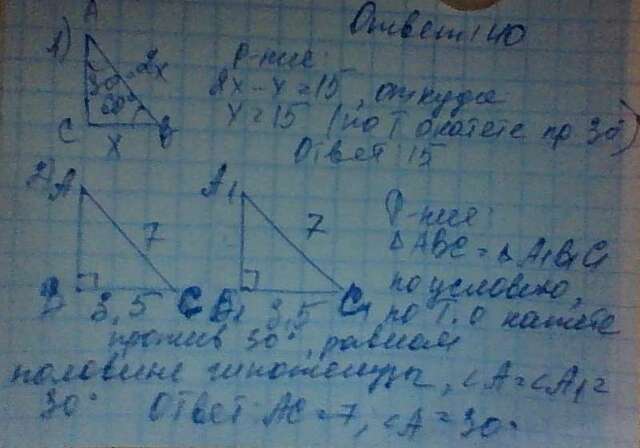 Ответ: 40
1)
A
30°
2x
60°
C
x
B
Р-ние:
2x - x = 15, откуда
x = 15 (по Т о катете пр 30°)
Ответ 15
2)
A
7
B
3,5
C
A1
7
B1
3,5
C1
Р-ние:
△ABC = △A1B1C1
по условию,
по Т. о катете
против 30°, равном
половине гипотенузы, ∠A = ∠A1 =
30° Ответ: AC = 7, ∠A = 30°